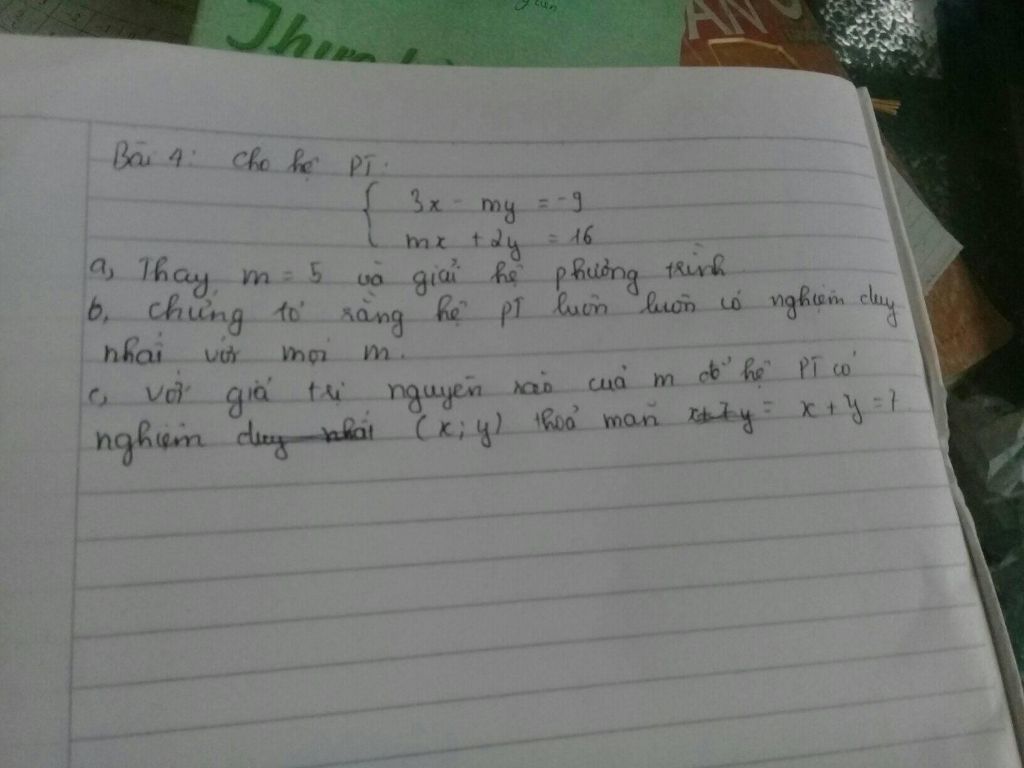 Thư
guen
AN
Bài 4: Cho hệ PT:
3x - my = -9
mx + 2y = 16
a, Thay m = 5 và giải hệ phương trình
b, Chứng tỏ rằng hệ PT luôn luôn có nghiệm duy
nhất với mọi m.
c, Với giá trị nguyên nào của m để hệ PT có
nghiệm duy nhất (x; y) thoả mãn x+7y = x + y = 7.